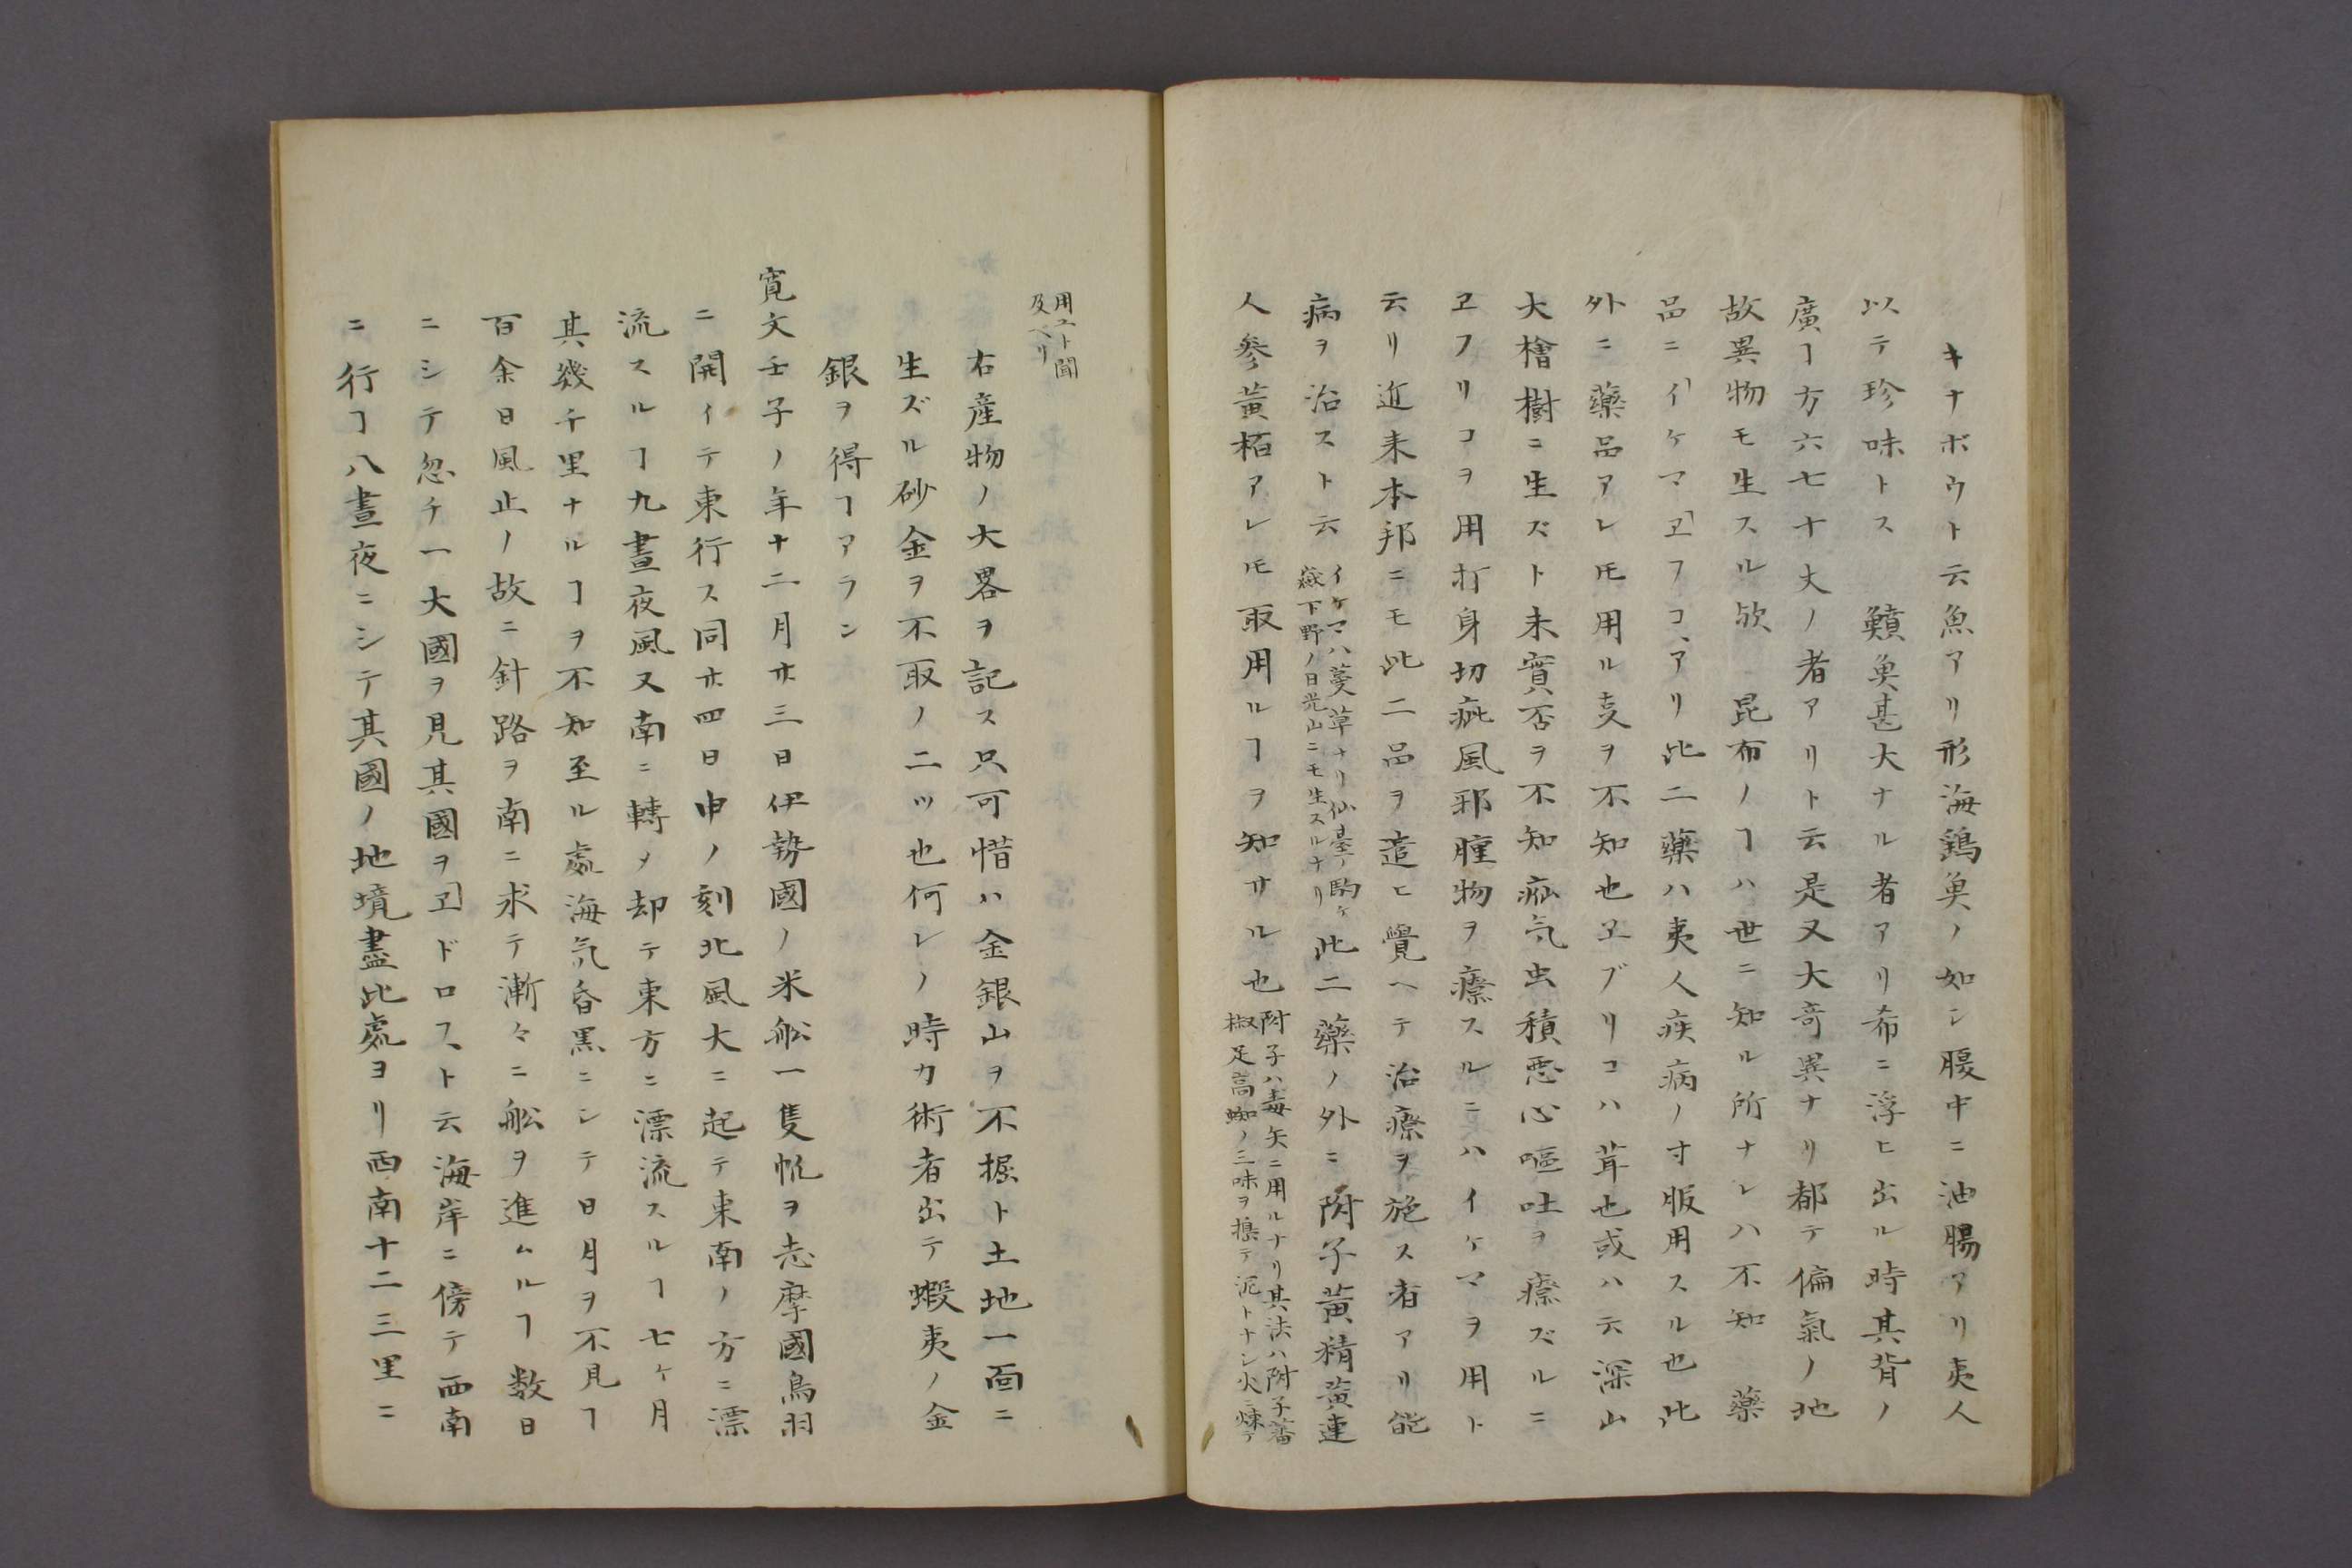 キナボウト云魚アリ形海鷂魚ノ如シ腹中ニ油腸アリ夷人
以テ珍味トス　鱝魚甚大ナル者アリ希ニ浮ヒ出ル時其背ノ
廣ヿ方六七十丈ノ者アリト云是又大奇異ナリ都テ偏氣ノ地
故異物モ生スル欤　昆布ノヿハ世ニ知ル所ナレハ不知　藥
品ニ「イケマ「ヱフコヽアリ此二藥ハ夷人疾病ノ寸服用スル也此
外ニ藥品アレ𪜈用ル叓ヲ不知也ヱブリコハ茸也或ハ云深山
大檜樹ニ生ズト未實否ヲ不知疝气虫積悪心嘔吐ヲ療ズルニ
ヱフリコヲ用打身切疵風邪腫物ヲ療スルニハイケマヲ用ト
云リ近来本邦ニモ此二品ヲ遣ヒ覺ヘテ治療ヲ施ス者アリ能
病ヲ治スト云
イケマハ蔓草ナリ仙臺ノ駒ケ
嶽下野ノ日光山ニモ生スルナリ
此二藥ノ外ニ附子黄精黄連
人参黄栢アレ𪜈取用ルヿヲ知サル也
附子ハ毒矢ニ用ルナリ其法ハ附子蕃
椒足高蜘ノ三味ヲ搗テ泥トナシ火ニ煉テ
用ユト聞
及ヘリ
右産物ノ大畧ヲ記ス只可惜ハ金銀山ヲ不掘ト土地一面ニ
生ズル砂金ヲ不取ノ二ツ也何レノ時カ術者出テ蝦夷ノ金
銀ヲ得ヿアラン
寛文壬子ノ年十二月廿三日伊勢國ノ米舩一隻帆ヲ志摩國鳥羽
ニ開イテ東行ス同廿四日申ノ刻北風大ニ起テ東南ノ方ニ漂
流スルヿ九晝夜風又南ニ轉メ却テ東方ニ漂流スルヿ七ケ月
其幾千里ナルヿヲ不知至ル處海气昏黒ニシテ日月ヲ不見ヿ
百余日風止ノ故ニ針路ヲ南ニ求テ漸々ニ舩ヲ進ムルヿ数日
ニシテ忽チ一大國ヲ見其國ヲ「ヱドロフ、ト云海岸ニ傍テ西南
ニ行ヿ八晝夜ニシテ其國ノ地境盡此處ヨリ西南十二三里ニ